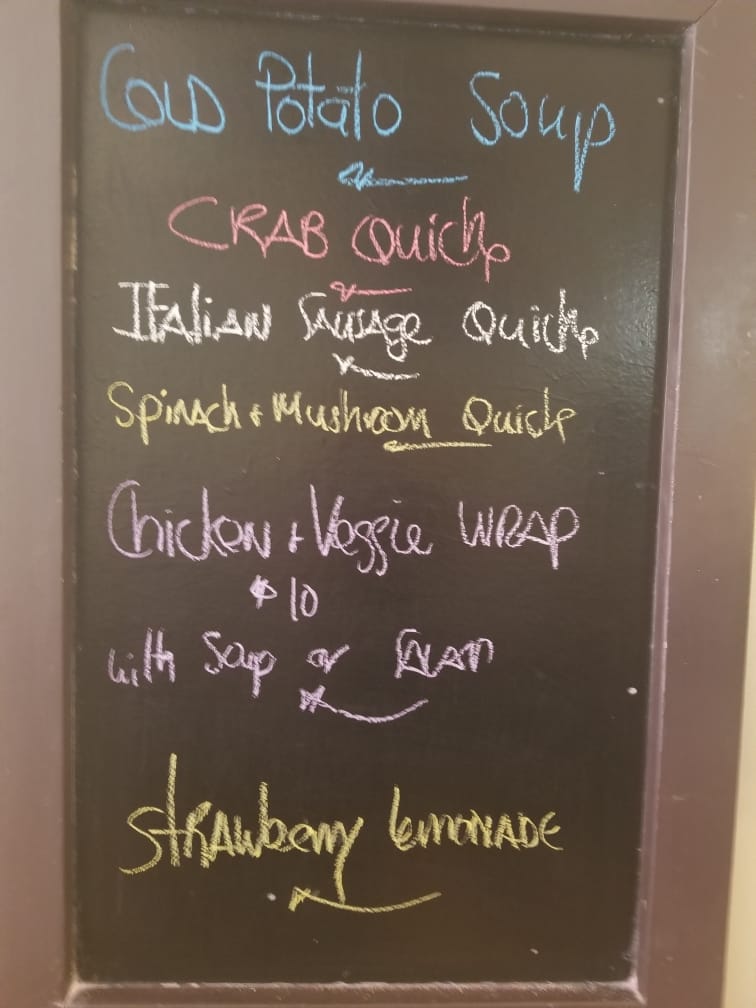 Cold Potato Soup
CRAB Quiche
Italian Sausage Quiche
Spinach + Mushroom Quiche
Chicken + Veggie WRAP
$10
with Soup or Salad
Strawberry Lemonade